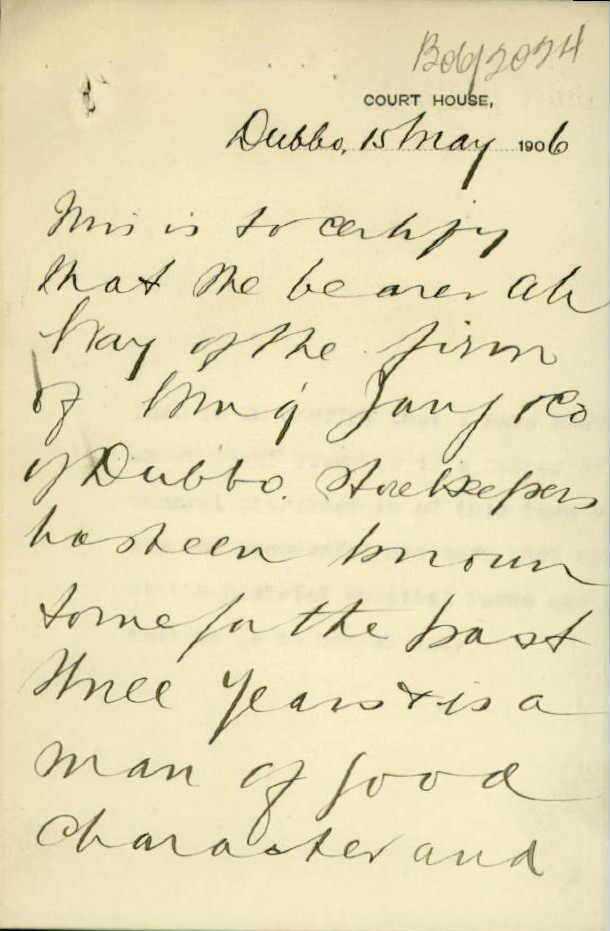 B06/2024
COURT HOUSE,
Dubbo, 15 May 1906
This is to certify
that the bearer Ah
Way of the firm
of &Co
of Dubbo. Storekeepers
has been known
to me for the past
three years & is a
man of good
character and